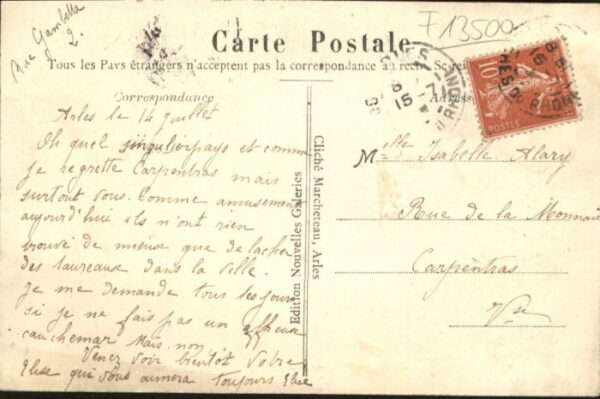 Rue Gambetta
2.
F 13500
Carte Postale
Tous les Pays étrangers n'acceptent pas la correspondance au recto
Correspondance
Arles le 14 juillet
Oh quel singulier pays et comme
je regrette Carpentras mais
surtout vous. Comme amusement
aujourd'hui ils n'ont rien
trouvé de mieux que de lacher
des taureaux dans la ville.
Je me demande tous les jours
si je ne fais pas un affreux
cauchemar mais non
Venez voir bientôt votre
Elise qui vous aimera toujours Elise
Edition Nouvelles Galeries
Cliché Marcheteau, Arles
10
POSTES
Melle Isabelle Alary
Rue de la Monnaie
Carpentras
Vse